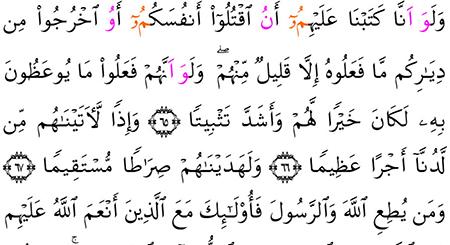 وَلَوَ اَنَّا كَتَبْنَا عَلَيْهِمُۥٓ أَنُ اُقْتُلُوٓاْ أَنفُسَكُمُۥٓ أَوُ اُخْرُجُواْ مِن
دِيَـٰرِكُم مَّا فَعَلُوهُ إِلَّا قَلِيلٌ مِّنْهُمْ ۖ وَلَوَ اَنَّهُمْ فَعَلُواْ مَا يُوعَظُونَ
بِهِۦ لَكَانَ خَيْرًا لَّهُمْ وَأَشَدَّ تَثْبِيتًا ﴿٦٥﴾ وَإِذًا لَّأَتَيْنَـٰهُم مِّن
لَّدُنَّآ أَجْرًا عَظِيمًا ﴿٦٦﴾ وَلَهَدَيْنَـٰهُمْ صِرَٰطًا مُّسْتَقِيمًا ﴿٦٧﴾
وَمَن يُطِعِ اللَّهَ وَالرَّسُولَ فَأُوْلَـٰٓئِكَ مَعَ الَّذِينَ أَنْعَمَ اللَّهُ عَلَيْهِم